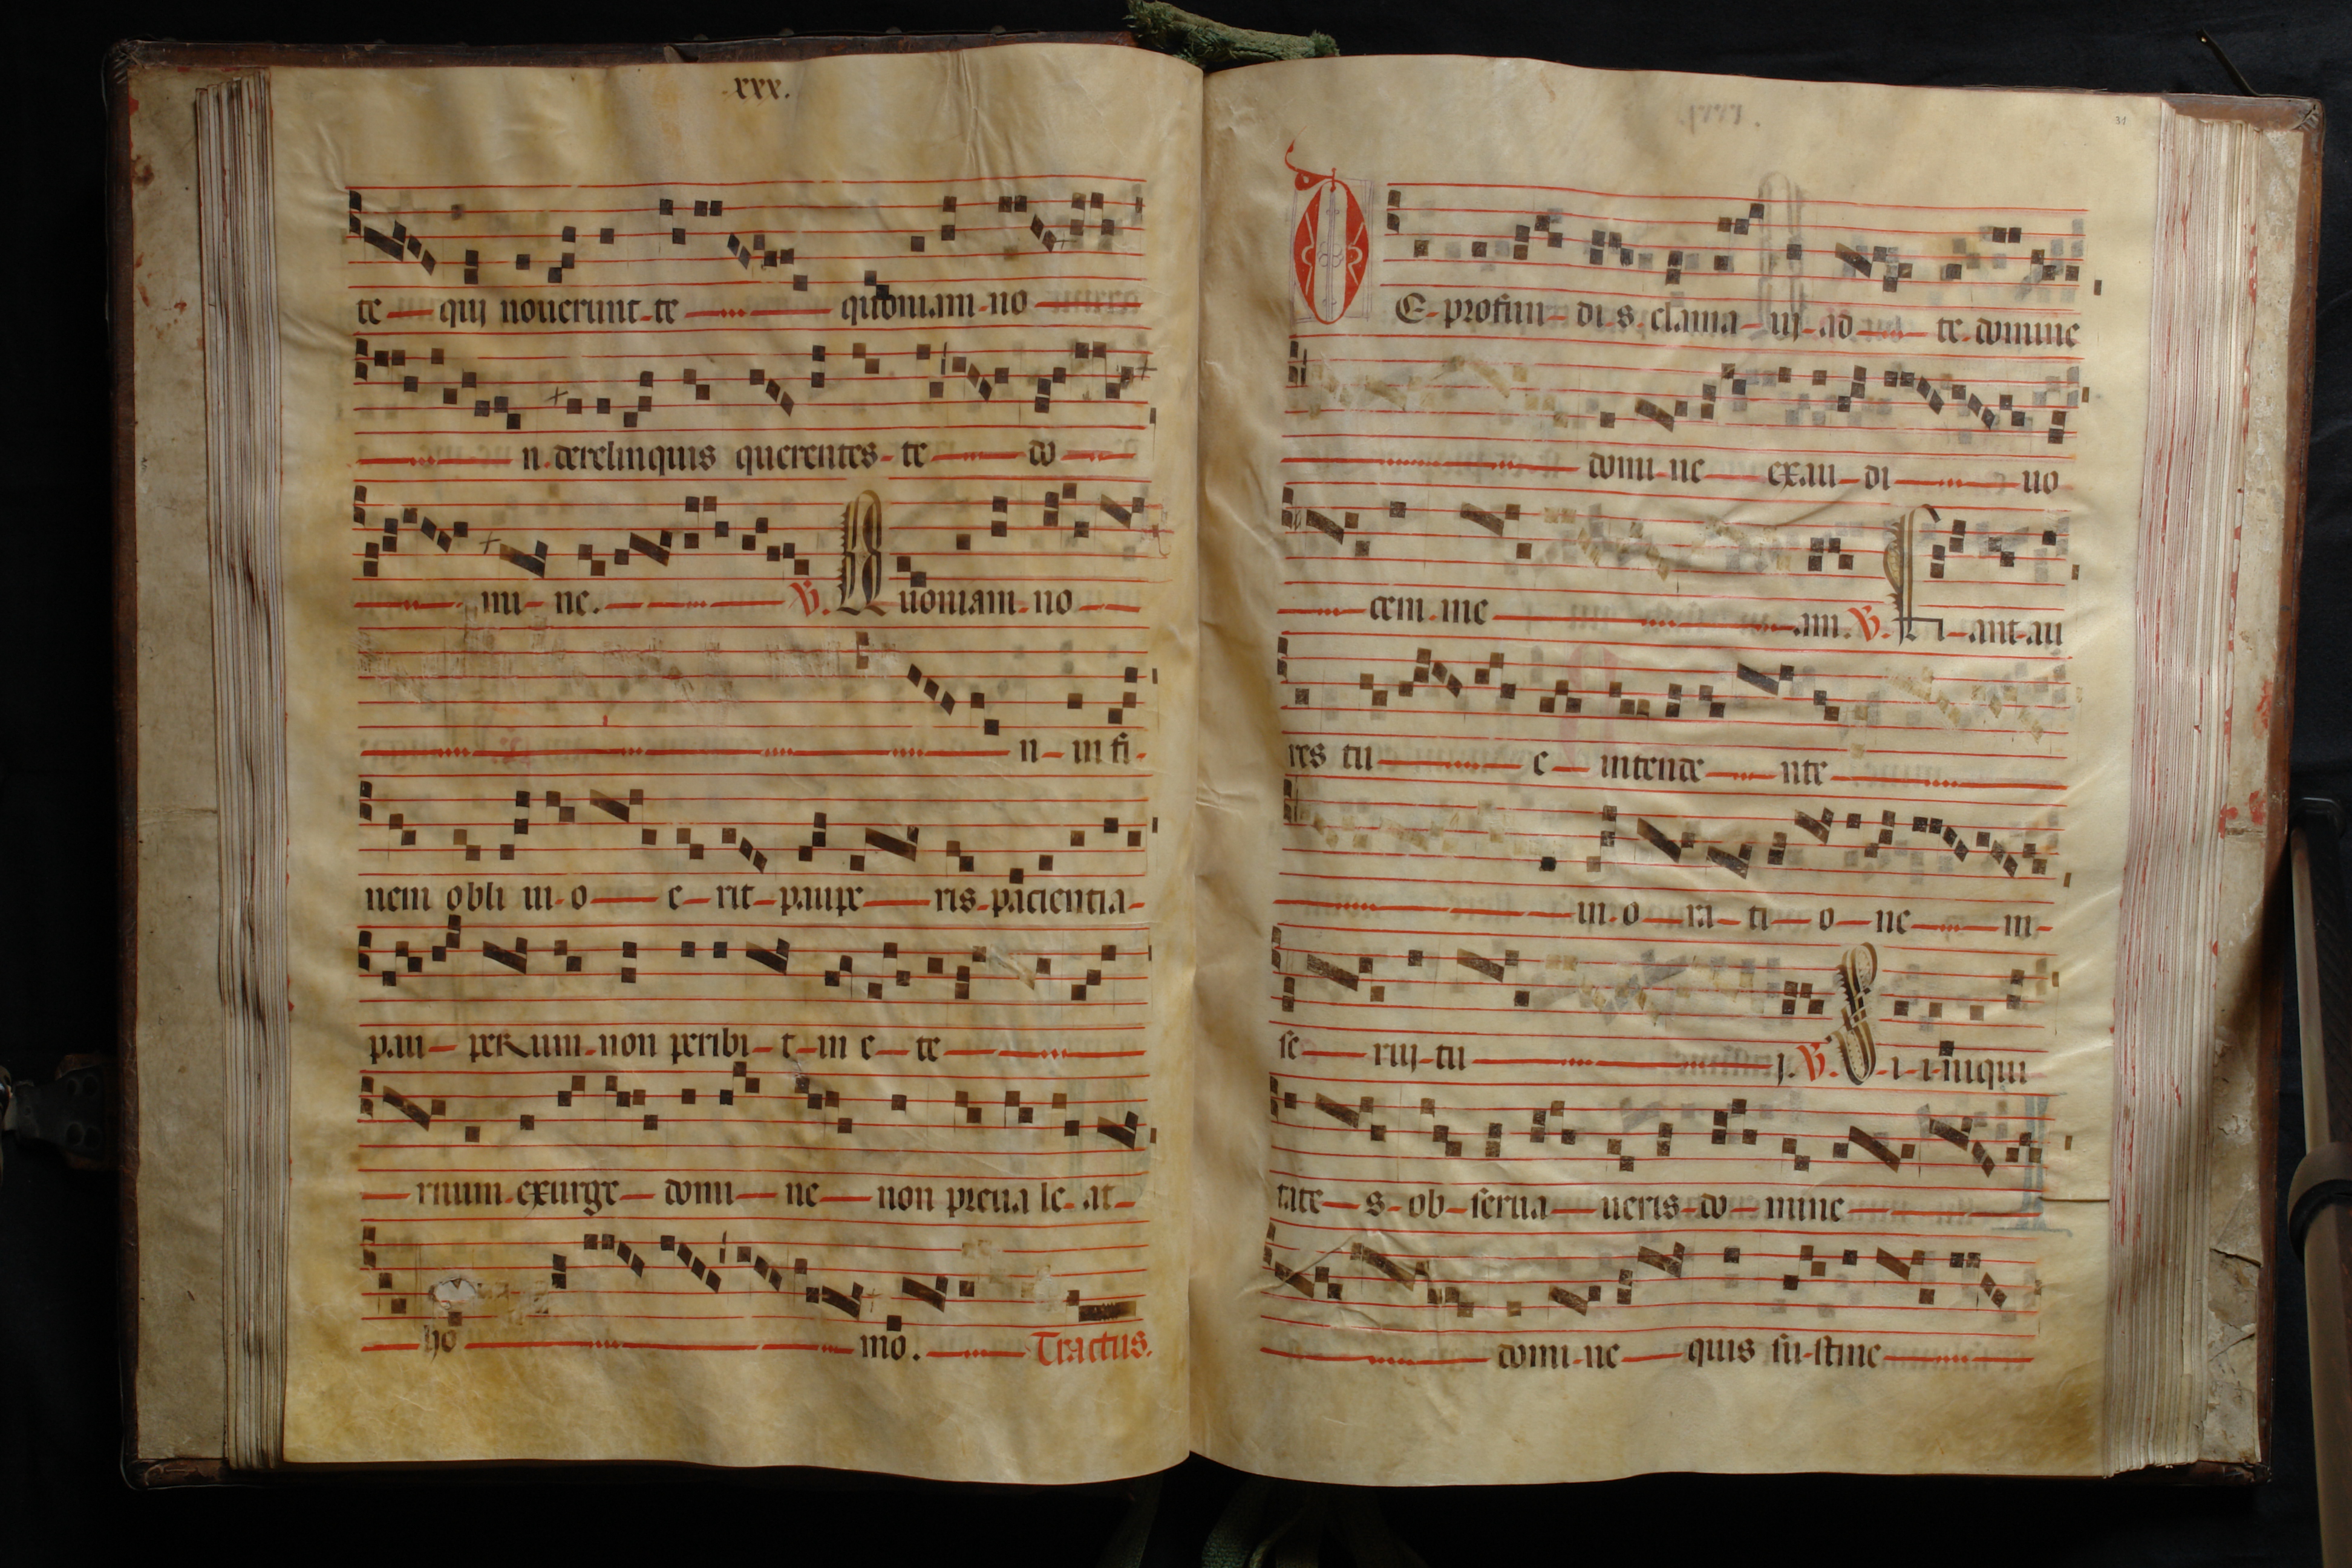 xxx.
te qui nouerunt te quoniam no
n derelinquis querentes te do
mi ne. V. Quoniam no
n in fi
nem obli ui o e rit paupe ris pacientia
pau perum non peribi t in e te
rnum exurge domi ne non preua le at
ho mo. Tractus.
31
DE profun di s clama ui ad te domine
domi ne exau di uo
cem me am. V. Fi ant au
res tu e intende nte
in o ra ti o ne m
se rui tu i. V. Si i niqui
tate s ob serua ueris do mine
domi ne quis su stine